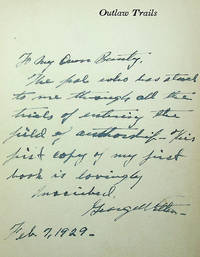 Outlaw Trails
To My Own Bounty.
The pal who has stuck
to me through all the
trials of entering the
field of authorship - This
first copy of my first
book is lovingly
inscribed
Feb 7, 1929 -